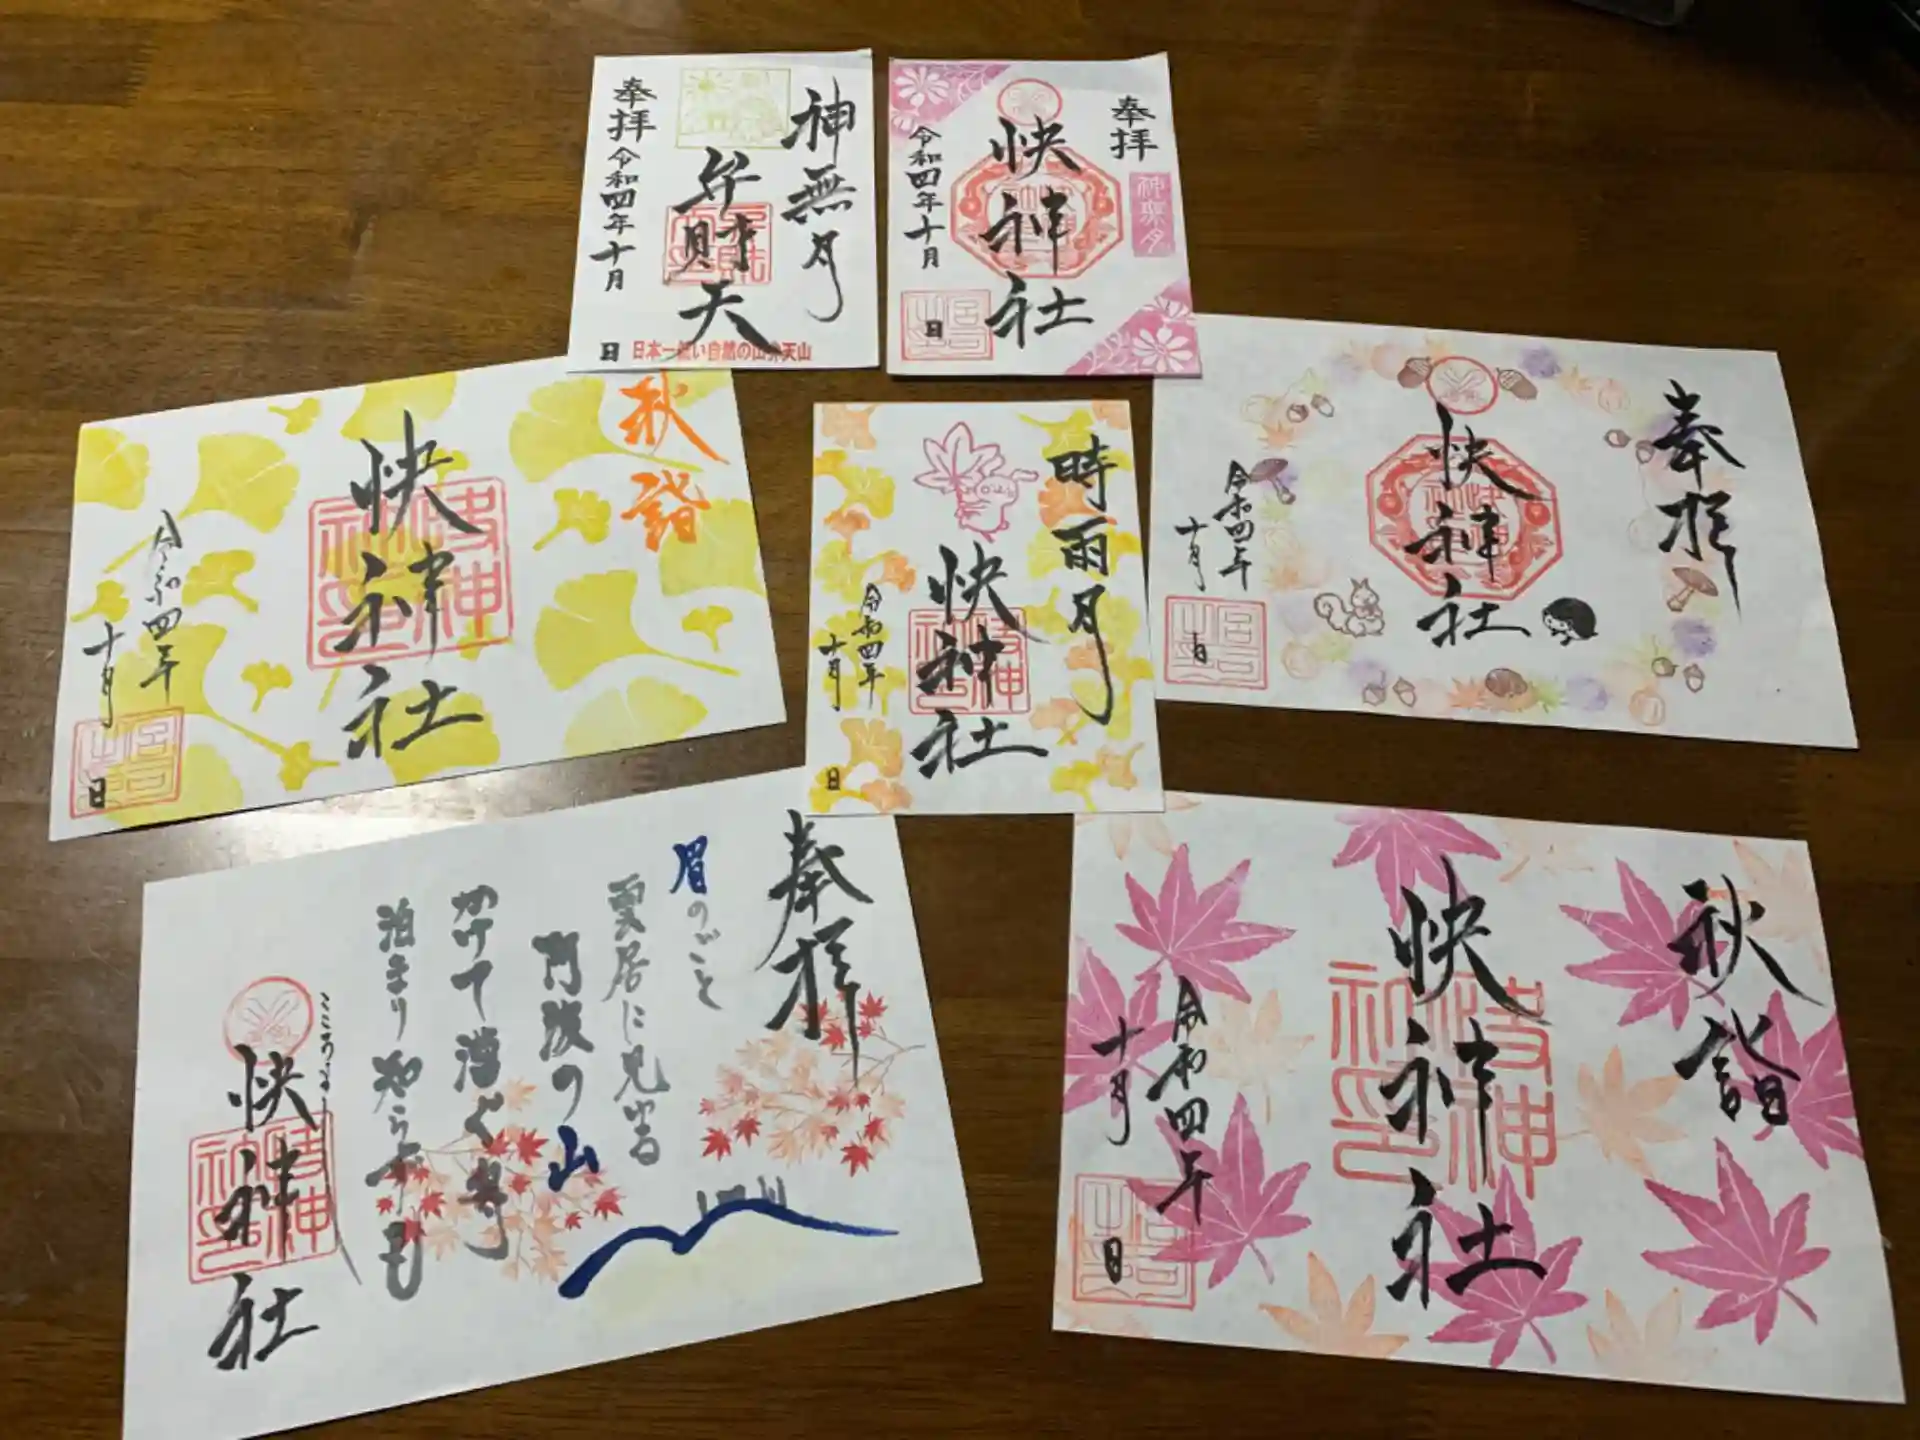 神無月
弁財天
奉拝
令和四年
十月
日
日本一低い自然の山弁天山
奉拝
神楽月
快神社
令和四年
十月
日
秋詣
快神社
令和四年
十月
日
時雨月
快神社
令和四年
十月
日
奉拝
快神社
令和四年
十月
日
奉拝
眉のごと
雲居に見ゆる
阿波の山
かけて漕ぐ舟
泊まり知らずも
こころよし
快神社
秋詣
快神社
令和四年
十月
日